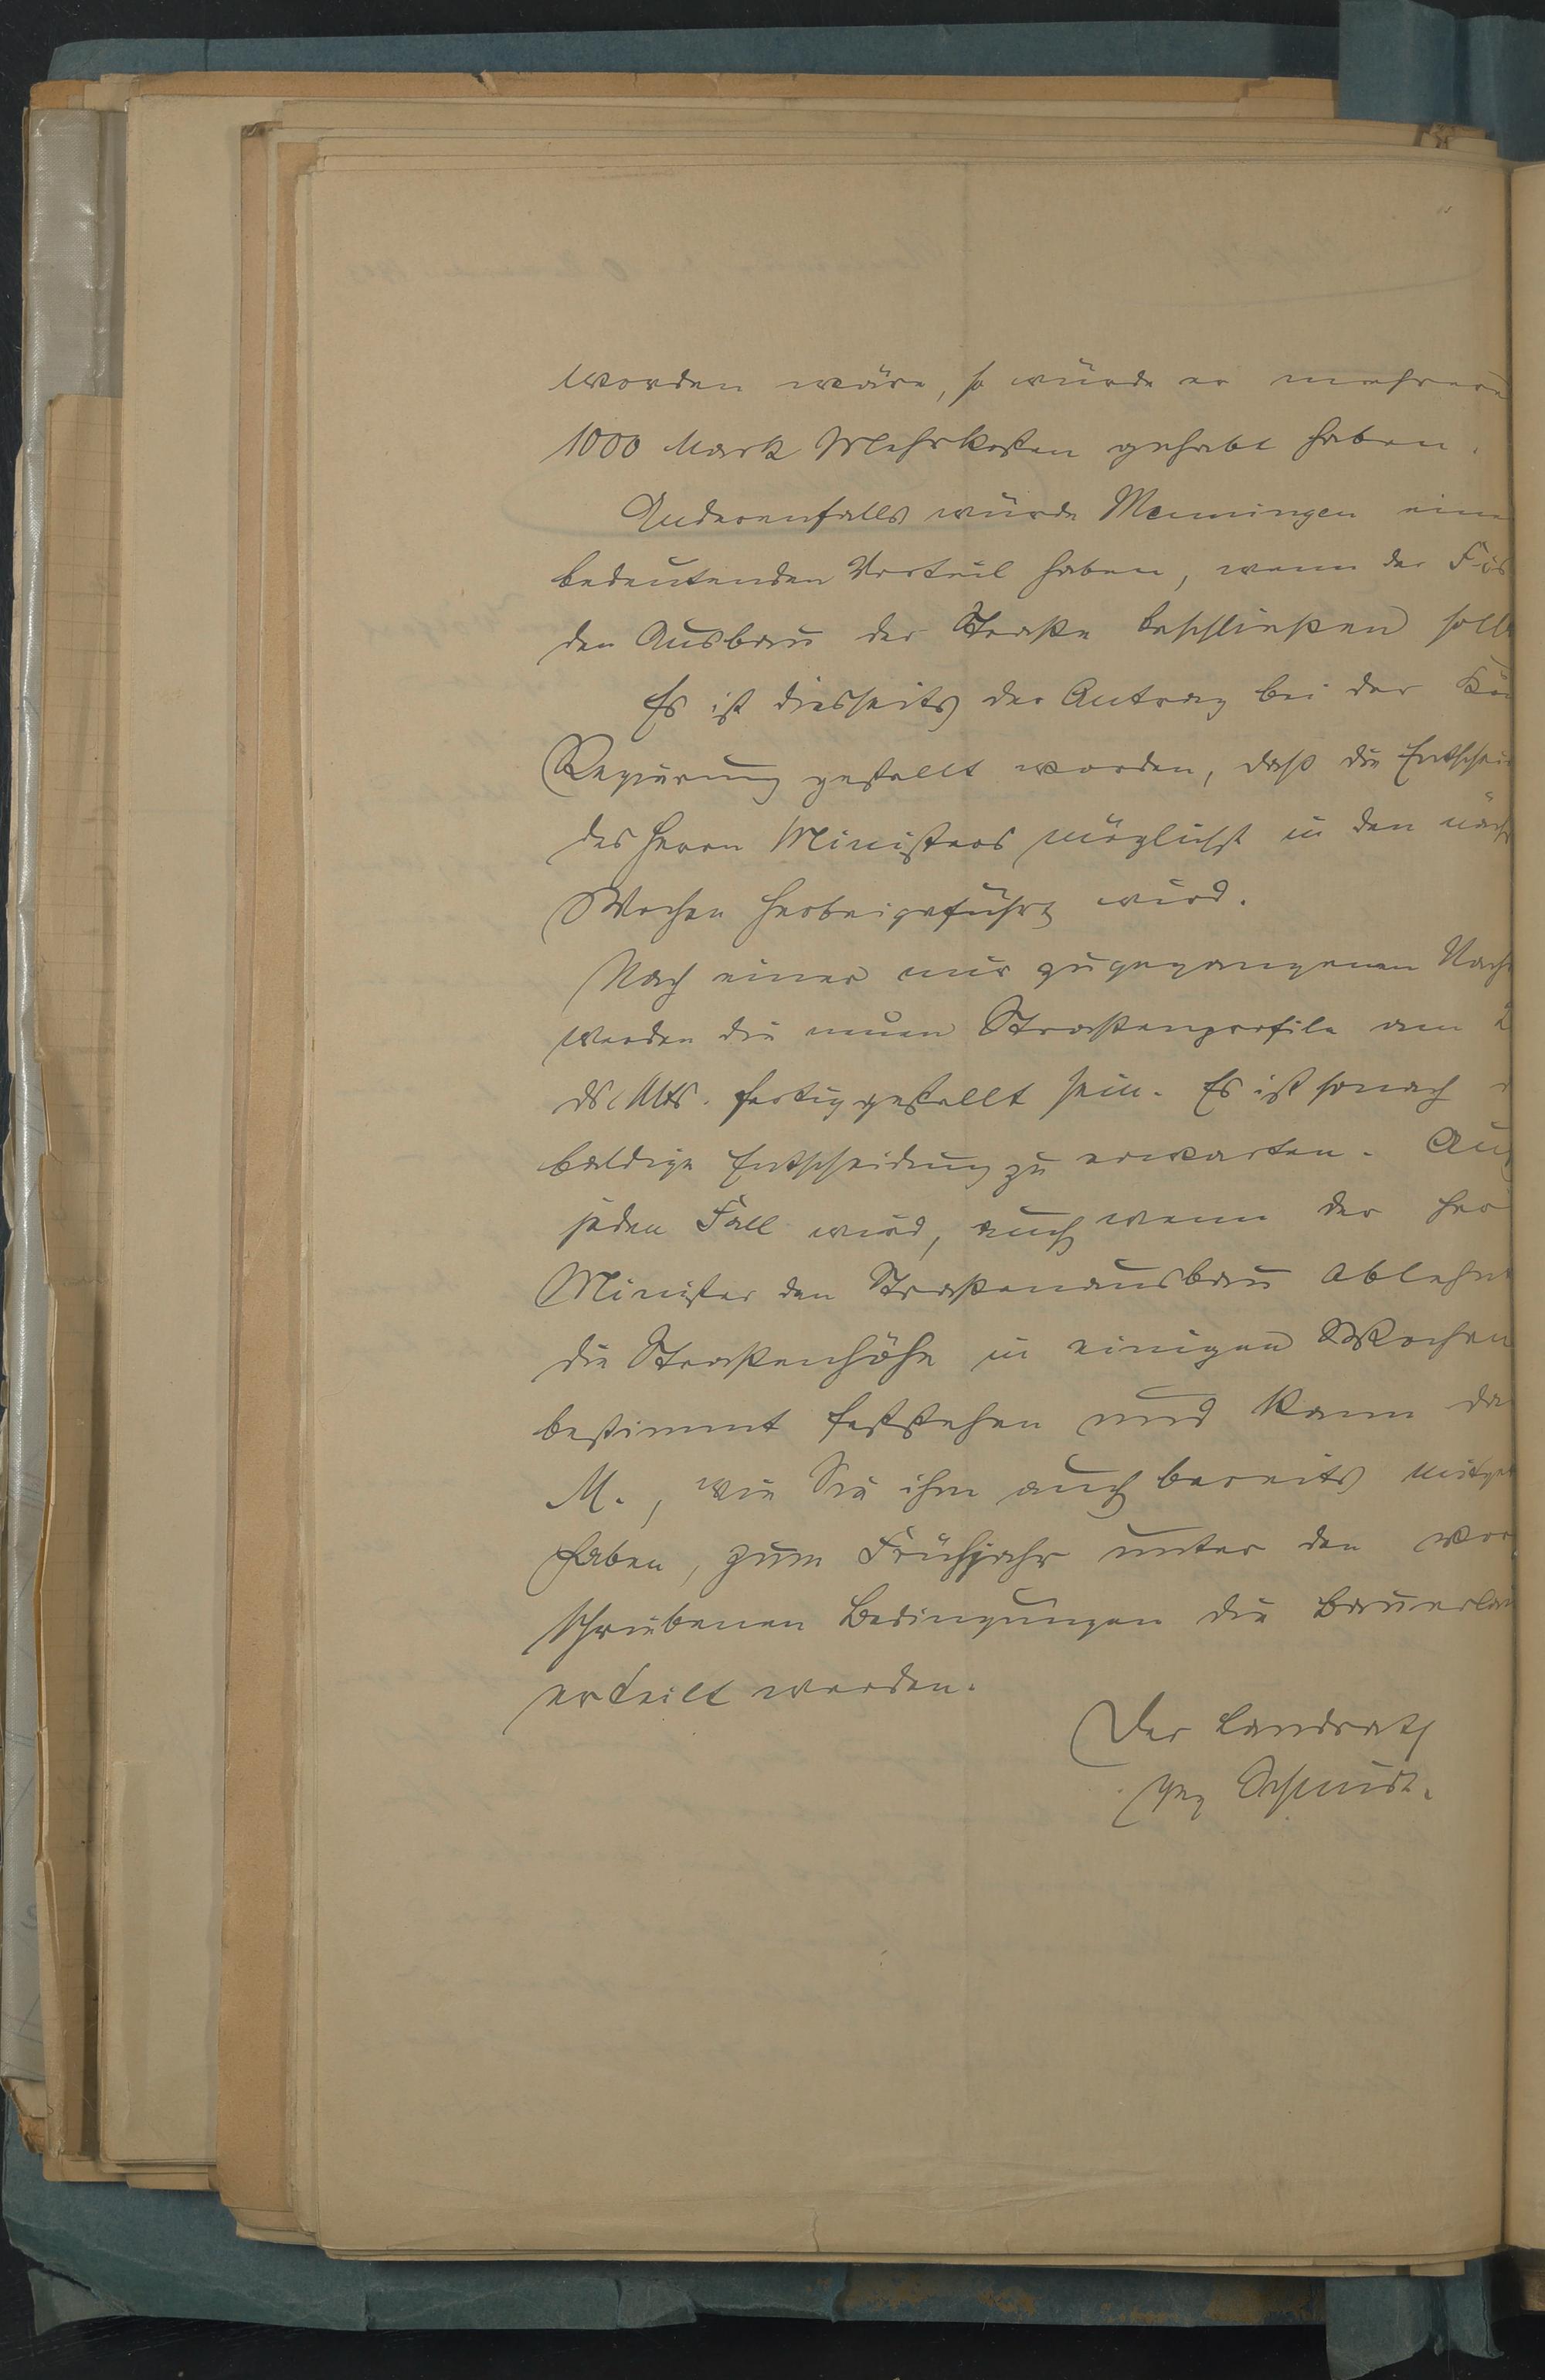 worden wäre, so würde er mehrere
1000 Mark Mehrkosten gehabt haben.
Anderenfalls würde Menningen eine
bedeutenden Vorteil haben, wenn der Fis
den Ausbau der Straße beschließen sollt
Es ist diesseits der Antrag bei der Kö
Regierung gestellt worden, daß die Entschei
des Herrn Ministers möglichst in den näch
Wochen herbeigeführt wird.
Nach einer mir zugegangenen Nach
werden die neuen Straßenprofile am 2
ds. Mts. fertiggestellt sein. Es ist sonach
baldige Entscheidung zu erwarten. Auf
jeden Fall wird, auch wenn der Her
Minister den Straßenausbau ablehnt
die Straßenhöhe in einigen Wochen
bestimmt feststehen und kann da
M., wie Sie ihm auch bereits mitget
haben, zum Frühjahr unter den vor
schriebenen Bedingungen die Bauerlau
erteilt werden.
Der Landrath
gez Schmidt.